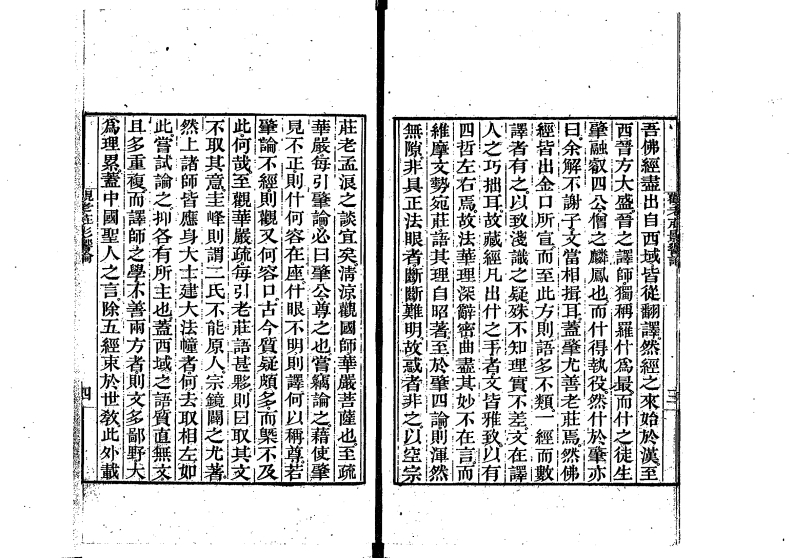 吾佛經盡出自西域皆從翻譯然經之來始於漢至
西晉方大盛晉之譯師獨稱羅什爲最而什之徒生
肇融叡四公僧之麟鳳也而什得執役然什於肇亦
曰余解不謝子文當相揖耳蓋肇尤善老莊焉然佛
經皆出金口所宣而至此方則語多不類一經而數
譯者有之以致淺識之疑殊不知理實不差文在譯
人之巧拙耳故藏經凡出什之手者文皆雅致以有
四哲左右焉故法華理深辭密曲盡其妙不在言而
維摩文勢宛莊語其理自昭著至於肇四論則渾然
無隙非具正法眼者斷斷難明故惑者非之以空宗
三
莊老孟浪之談宜矣清涼觀國師華嚴菩薩也至疏
華嚴每引肇論必曰肇公尊之也嘗竊論之藉使肇
見不正則什何容在座什眼不明則譯何以稱尊若
肇論不經則觀又何容口古今質疑頗多而槩不及
此何哉至觀華嚴疏每引老莊語甚夥則曰取其文
不取其意圭峰則謂二氏不能原人宗鏡闢之尤著
然上諸師皆應身大士建大法幢者何去取相左如
此嘗試論之抑各有所主也蓋西域之語質直無文
且多重複而譯師之學不善兩方者則文多鄙野大
爲理累蓋中國聖人之言除五經束於世敎此外載
觀老莊影響論
四